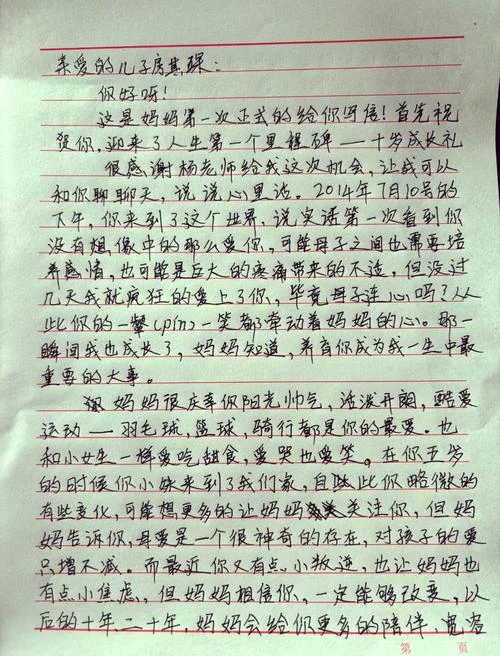 亲爱的儿子房其琛：
你好呀！
这是妈妈第一次正式的给你写信！首先祝
贺你，迎来了人生第一个里程碑——十岁成长礼
很感谢杨老师给我这次机会，让我可以
和你聊聊天，说说心里话。2014年7月10号的
下午，你来到了这个世界，说实话第一次看到你
没有想像中的那么爱你，可能母子之间也需要培
养感情，也可能是巨大的疼痛带来的不适，但没过
几天我就疯狂的爱上了你，毕竟母子连心吗？从
此你的一颦(pín)一笑都牵动着妈妈的心。那一
瞬间我也成长了，妈妈知道，养育你成为我一生中最
重要的大事。
妈妈很庆幸你阳光帅气，活泼开朗，酷爱
运动——羽毛球，篮球，骑行都是你的最爱。也
和小女生一样爱吃甜食，爱哭也爱笑。在你五岁
的时候你小妹来到了我们家，自此你略微的
有些变化，可能想更多的让妈妈关注你，但妈
妈告诉你，母爱是一个很神奇的存在，对孩子的爱
只增不减。而最近你又有点小叛逆，也让妈妈也
有点小焦虑，但妈妈相信你，一定能够改变，以
后的十年二十年，妈妈会给你更多的陪伴，宽容
第 页